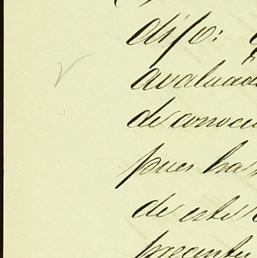 dijo:
avaluac
de conoce
pues ha
de este
presente